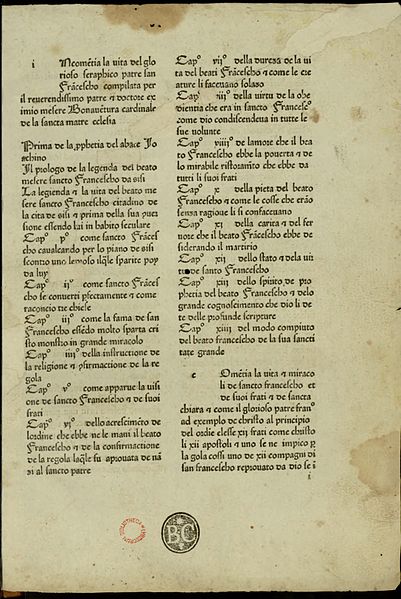 i Neomẽtia la uita del glo
rioso seraphico patre san
Frãcescho compilata per
il reuerendissimo patre ⁊ doctore ex
imio mesere Bonauẽtura cardinale
de la sancta matre eclesia
Prima de la ꝓphetia del abate Jo
achino
Il prologo de la legenda del beato
mesere sancto Francescho da sisi
La legienda ⁊ la uita del beato me
sere sancto Francescho citadino de
la cita de sisi ⁊ prima della sua
sione essendo lai in habito seculare
Capº pº come sancto Frãces
cho caualcardo per lo piano de sisi
scontro uno lemoso sparite pop
da luy
Capº iiº come sancto Frãces
cho se conuerti ꝑfectamente ⁊ come
raconcio tre chiese
Capº iiiº come la fama de san
Francescho essẽdo molto sparta cri
sto monstro in grande miracolo
Capº iiiiº della instructione de
la religione ⁊ ꝯfirmactione de la re
gola
Capº vº come apparue la uisi
one de sancto Francescho ⁊ de suoi
frati
Capº viº dello acrescimẽro de
lordine che ebbe ne le mani il beato
Francescho ⁊ de la confirmactione
de la regola laq̃le fu apꝛouata de nã
zi al sancto patre
Capº viiº della duresa de la ui
ta del beati Frãcescho ⁊ come le cre
ature li faceuano solaso
Capº viiiº della uirtu de la obe
dientia che era in sancto Francescº
come dio condiscendeua in tutte le
sue uolunte
Capº viiiiº de lamore che il bea
to Francescho ebbe la pouerta ⁊ de
lo mirabile ristoramẽto che ebbe da
tutti li suoi frati
Capº x della pieta del beato
Francescho ⁊ come le cose che erão
sensa ragioue li si confaceuano
Capº xi della carita ⁊ del fer
uore che il beato Frãcescho ebbe de
siderando il martirio
Capº xii dello stato ⁊ dela uir
tu de santo Francescho
Capº xiii dello spirito de pro
phetia del beato Francescho ⁊ delo
grande cognoscimento che dio li de
te delle profunde scripture
Capº xiiii del modo compiuto
del beato francescho de la sua sancti
tate grande
c Omẽtia la uita ⁊ miraco
li de sancto francescho et
de suoi frati ⁊ de sancta
chiara ⁊ come il glorioso patre franº
ad exemplo de christo al principio
del ordie elesse xii frati come christo
li xii apostoli ⁊ uno se ne impico ꝑ
la gola cossi uno de xii compagni di
san francescho repꝛouato da dio se ĩ
i
BC